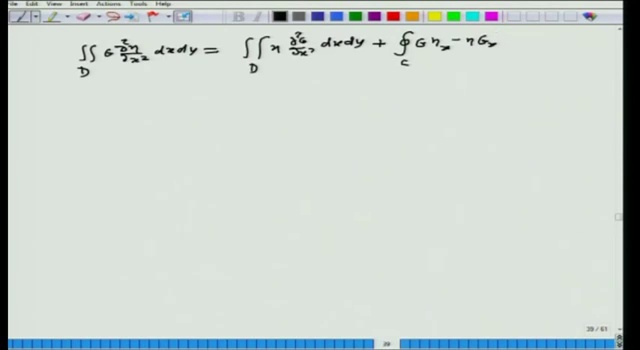 File Edit View Insert Actions Tools Help
∬_D G ∂²η/∂x² dxdy = ∬_D η ∂²G/∂x² dxdy + ∮_C G η_x − η G_x
29 / 61
29